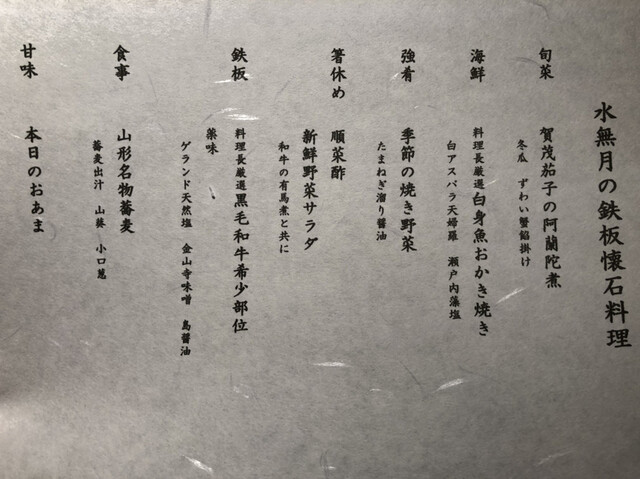 水無月の鉄板懐石料理
旬菜 賀茂茄子の阿蘭陀煮
冬瓜 ずわい蟹餡掛け
海鮮 料理長厳選白身魚おかき焼き
白アスパラ天婦羅 瀬戸内藻塩
強肴 季節の焼き野菜
たまねぎ溜り醤油
箸休め 順菜酢
新鮮野菜サラダ
和牛の有馬煮と共に
鉄板 料理長厳選黒毛和牛希少部位
薬味
ゲランド天然塩 金山寺味噌 島醤油
食事 山形名物蕎麦
蕎麦出汁 山葵 小口葱
甘味 本日のおあま